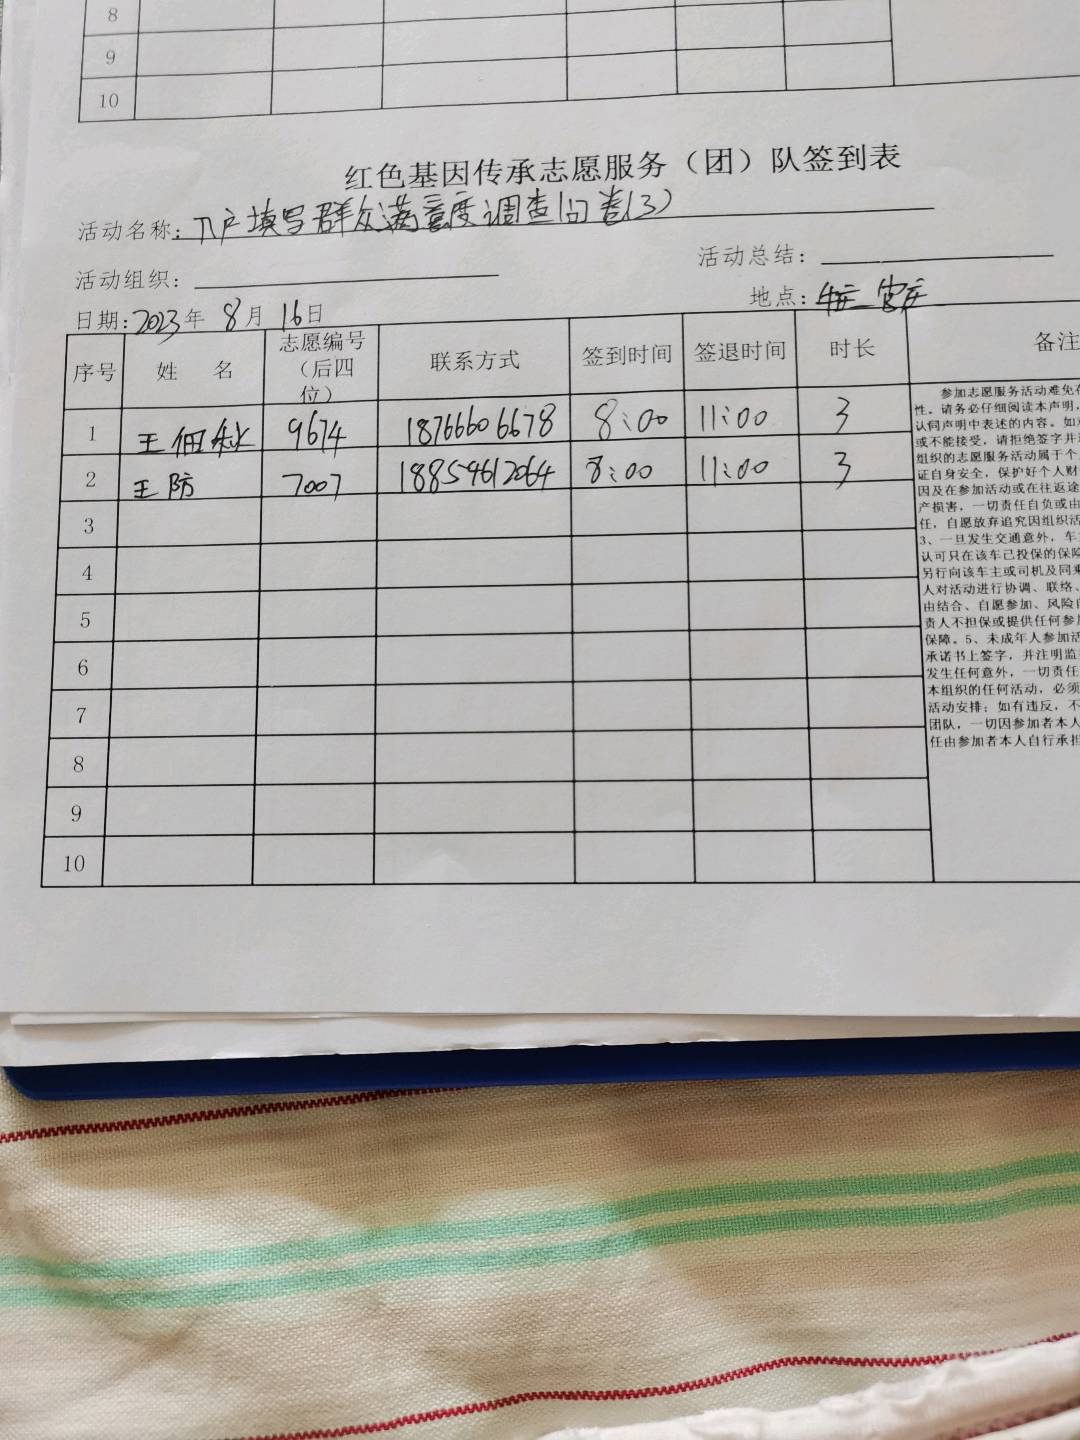 8
9
10
红色基因传承志愿服务（团）队签到表
活动名称：入户填写群众满意度调查问卷(3)
活动组织： 活动总结：
日期：2023年 8月 16日 地点：
序号 姓 名 志愿编号（后四位） 联系方式 签到时间 签退时间 时长 备注
1 王 秋 9674 18766606678 8:00 11:00 3
2 王防 7007 18859612064 8:00 11:00 3
3
4
5
6
7
8
9
10
参加志愿服务活动难免
性。请务必仔细阅读本声明，
认同声明中表述的内容。如
或不能接受，请拒绝签字并
组织的志愿服务活动属于个
证自身安全，保护好个人财
因及在参加活动或在往返途
产损害，一切责任自负或由
任，自愿放弃追究因组织活
3、一旦发生交通意外，车
认可只在该车已投保的保险
另行向该车主或司机及同乘
人对活动进行协调、联络、
由结合、自愿参加、风险自
责人不担保或提供任何参加
保障。5、未成年人参加活
承诺书上签字，并注明监
发生任何意外，一切责任
本组织的任何活动，必须
活动安排；如有违反，不
团队，一切因参加者本人
任由参加者本人自行承担